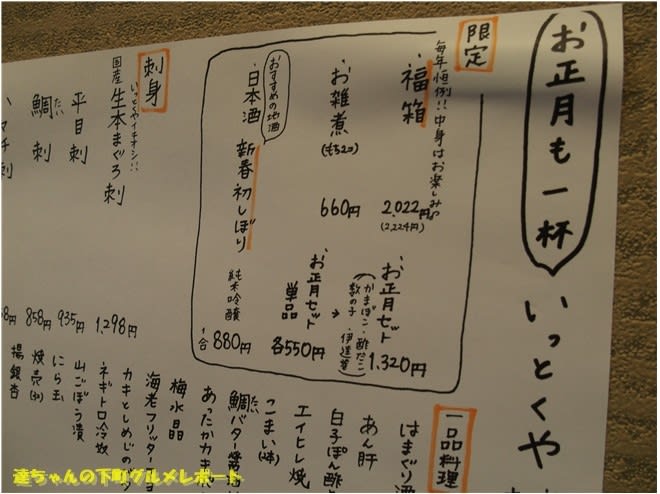 お正月も一杯
いっとくや
限定
毎年恒例!!中身はお楽しみ♡
福箱
2,022円
(2,224円)
お雑煮
(もち2コ)
660円
おすすめの地酒
日本酒
新春初しぼり
純米吟醸
1合 880円
お正月セット
(かまぼこ・酢だこ
数の子・伊達巻)
1,320円
お正月セット
単品
各550円
刺身
国産
いっとくやイチオシ!!
生本まぐろ刺
1,298円
平目刺
935円
鯛刺
たい
858円
一品料理
はまぐり酒
あん肝
白子ぽん酢
エイヒレ焼
こまい(2本)
鯛バター醤
たい
あったかカキ
梅水晶
海老フリッター
カキとしめじの
ネギトロ冷奴
山ごぼう漬
にら玉
焼売(3コ)
揚銀杏
達ちゃんの下町グルメレポート